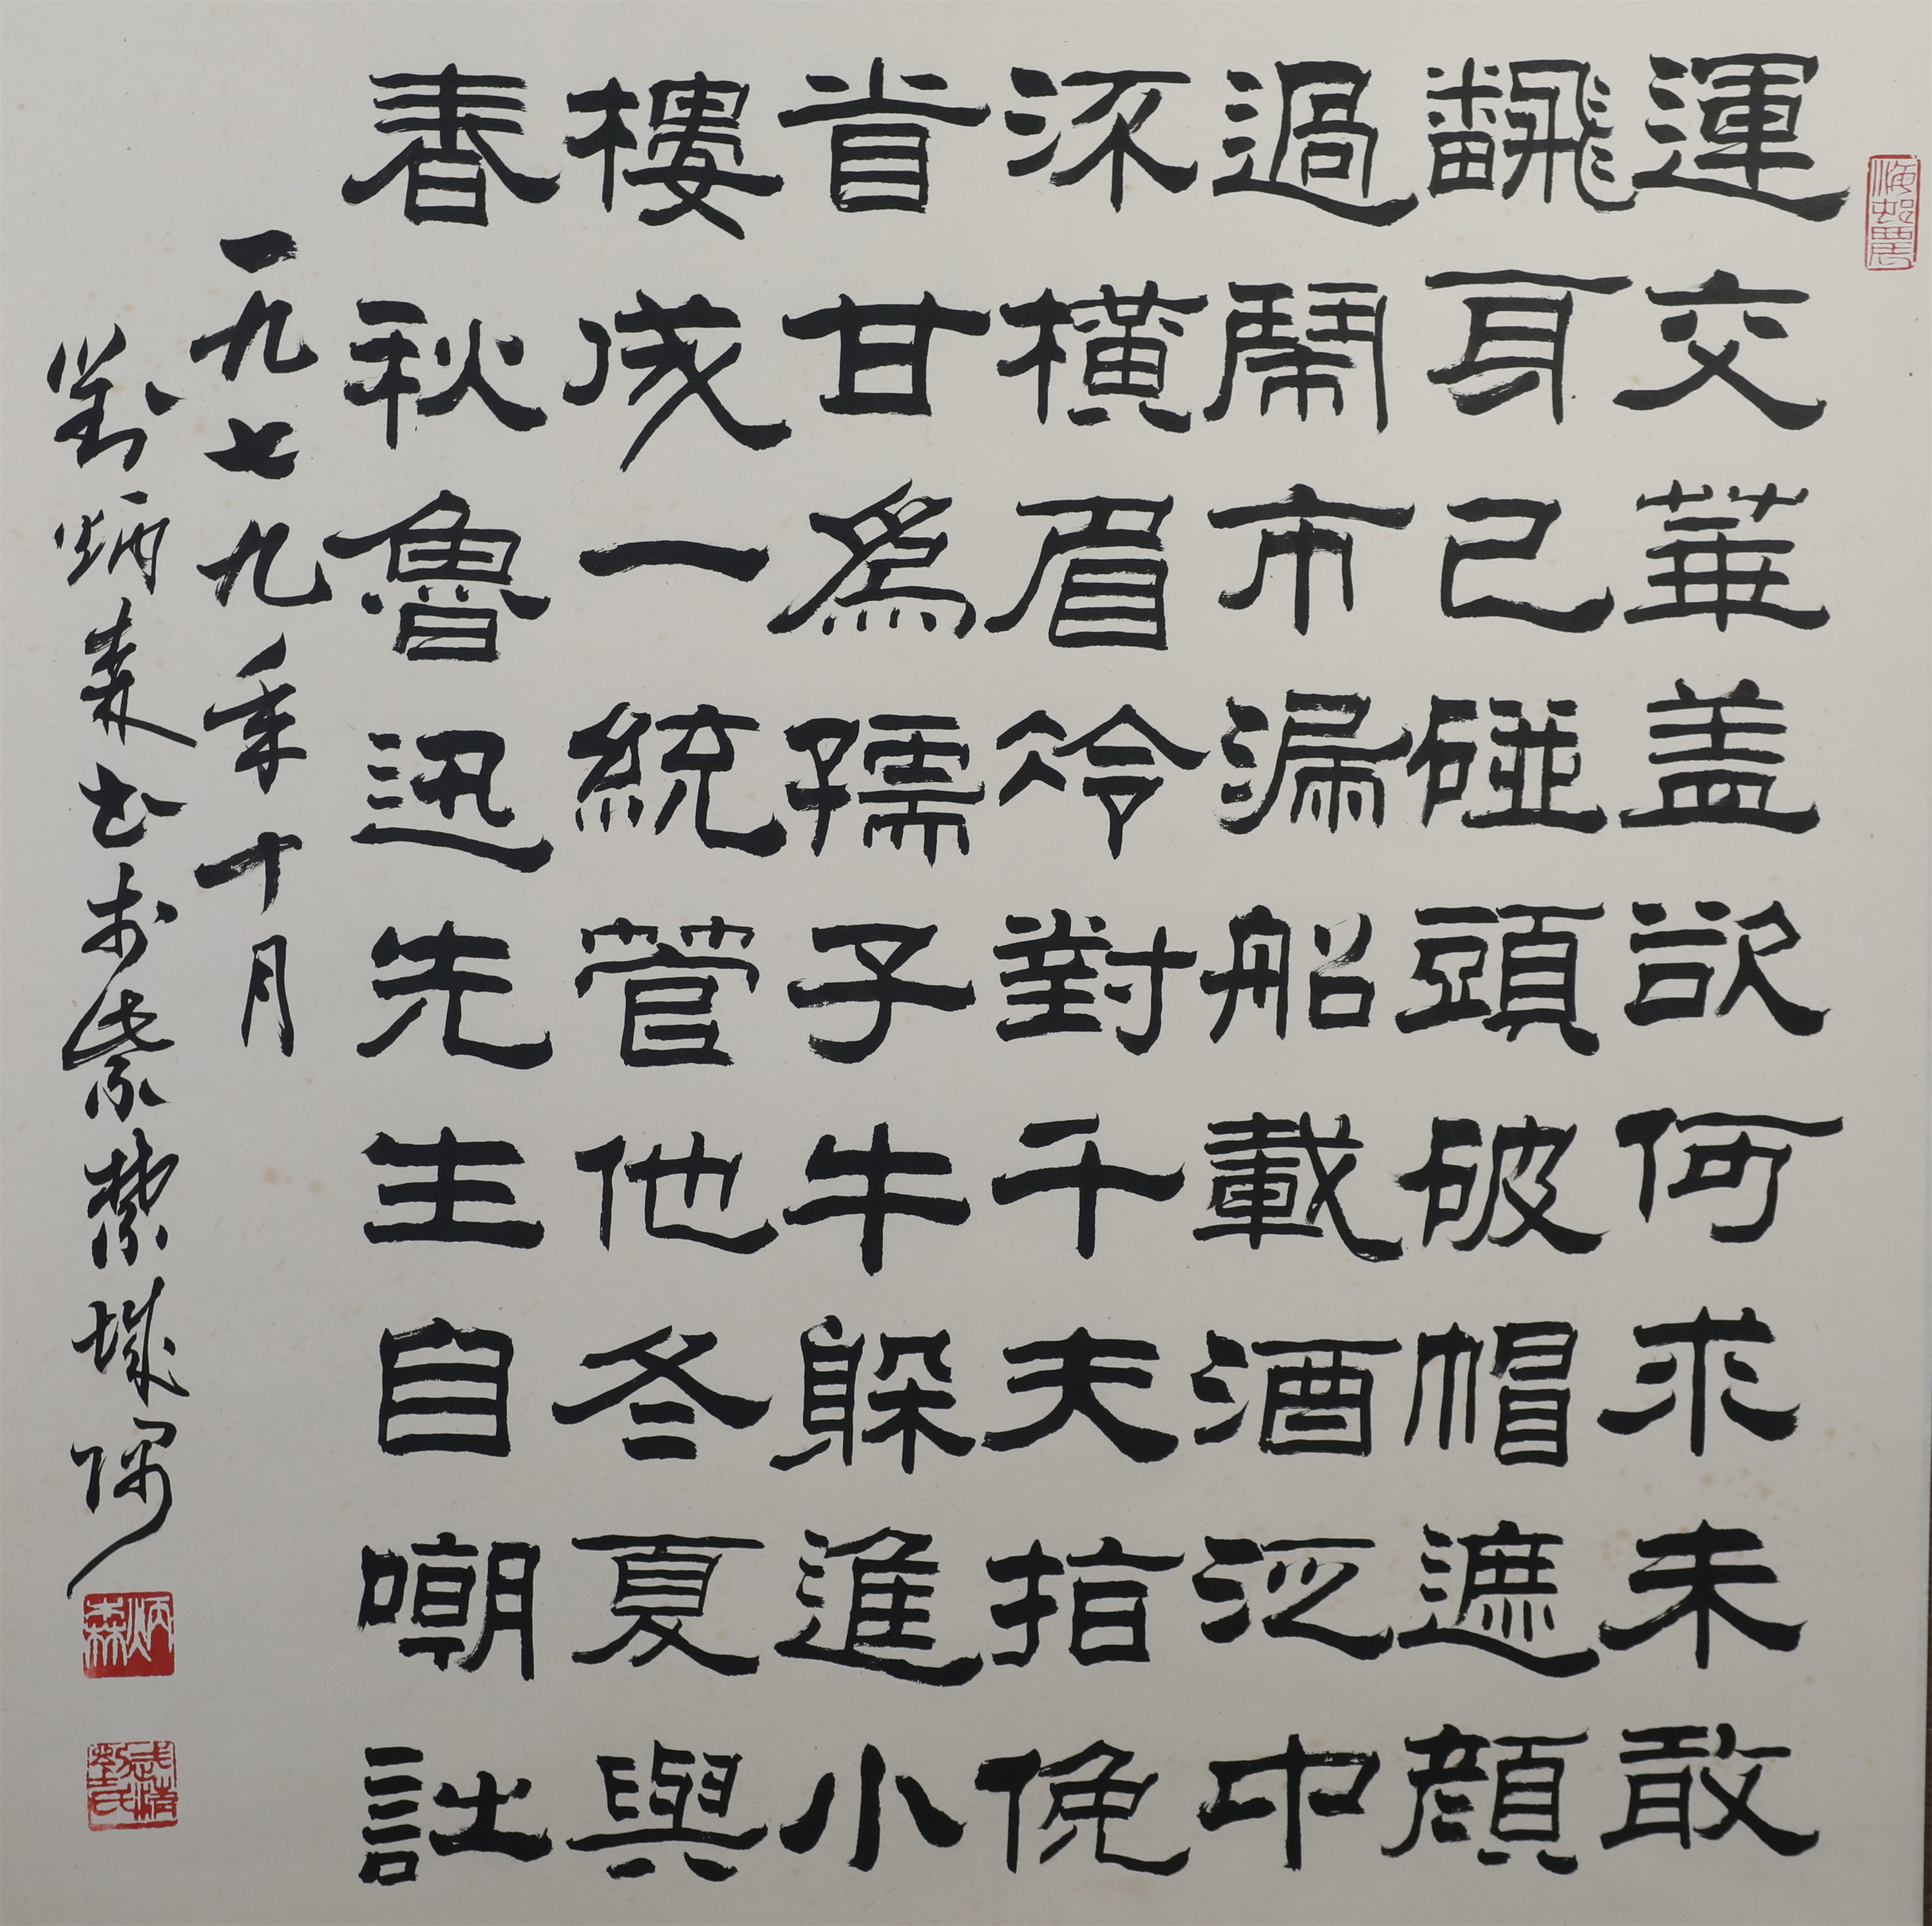 運交華盖欲何求未敢
飜身已碰頭破帽遮顏
過鬧市漏船載酒泛中
流橫眉冷對千夫指俛
首甘爲孺子牛躲進小
樓成一統管他冬夏與
春秋魯迅先生自嘲詩
一九七九年十月
劉炳森书於紫禁城隅
炳森
武清劉氏